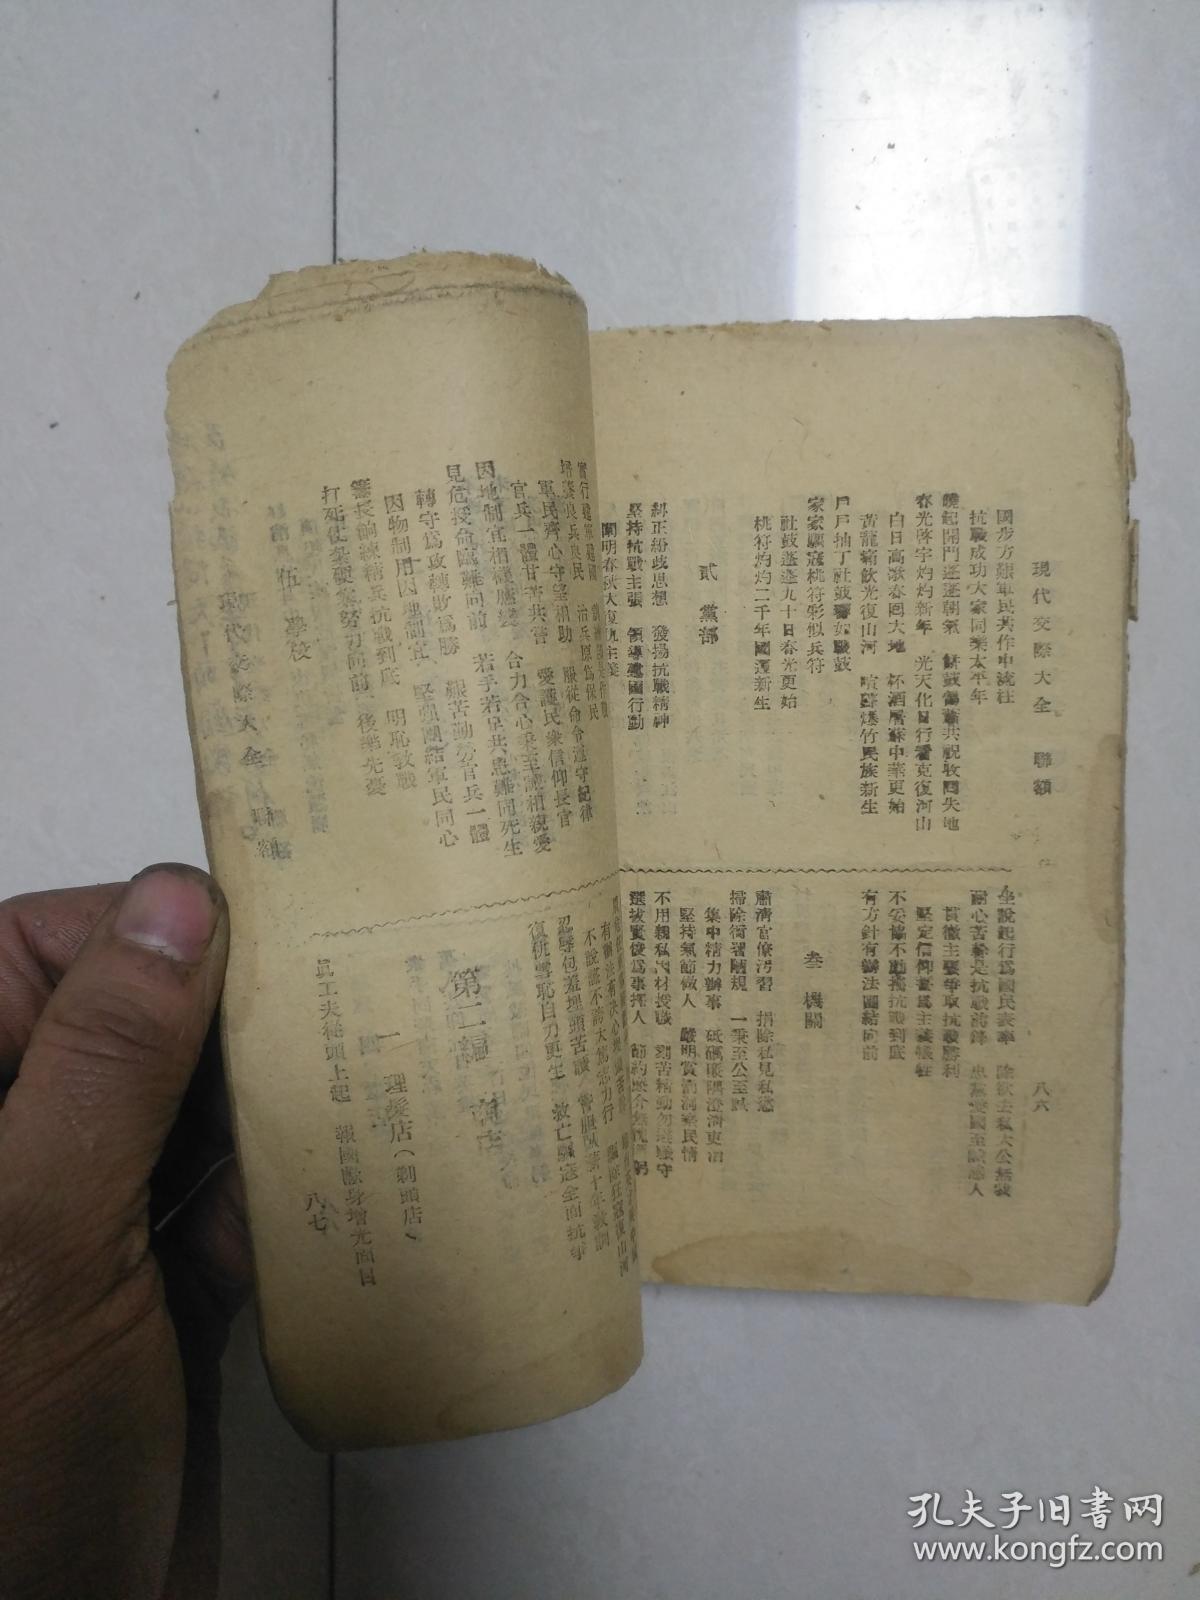 現代交際大全 聯額
八六
國步方艱軍民共作中流柱
抗戰成功大家同樂太平年
曉起開門蓬蓬朝氣
共祝收回失地
春光啓宇灼灼新年 光天化日行看克復河山
白日高歌春回大地 杯酒屠蘇中華更始
黃龍痛飲光復山河 喧騰爆竹民族新生
戶戶抽丁社鼓響如戰鼓
家家驅寇桃符彩似兵符
社鼓蓬蓬九十日春光更始
桃符灼灼二千年國運新生
貳 黨部
糾正紛歧思想 發揚抗戰精神
堅持抗戰主張 領導建國行動
闡明春秋大復仇主義
坐說起行爲國民表率 除欲去私大公無我
耐心苦幹是抗戰前鋒 忠黨愛國至誠感人
貫徹主張爭取抗戰勝利
堅定信仰誓爲主義犧牲
不妥協不動搖抗戰到底
有方針有辦法團結向前
叁 機關
肅清官僚污習 捐除私見私慾
掃除衙署陋規 一秉至公至誠
集中精力辦事 砥礪廉隅澄清吏治
堅持氣節做人 嚴明賞罰洞察民情
不用親私因材授職 刻苦精勤勿違職守
選拔賢俊爲事擇人 節約廉介無愧
軍民齊心守望相助 服從命令遵守紀律
官兵一體甘苦共嘗 愛護民衆信仰長官
因地制宜相機應變 合力合心秉至誠相親愛
見危授命臨難向前 若手若足共患難同死生
轉守爲攻轉敗爲勝 艱苦勤勞官兵一體
因物制用因地制宜 堅强團結軍民同心
籌長餉練精兵抗戰到底 明恥教戰
打死仗紮硬寨努力向前 後樂先憂
伍 學校
現代交際大全 聯額
有辦法有決心
不說謊不誇大篤志力行
忍辱包羞埋頭苦幹
復仇雪恥自力更生 救亡驅寇全面抗爭
第二編 商店
一 理髮店（剃頭店）
眞工夫從頭上起 報國獻身增光面目
八七
孔夫子旧书网
www.kongfz.com